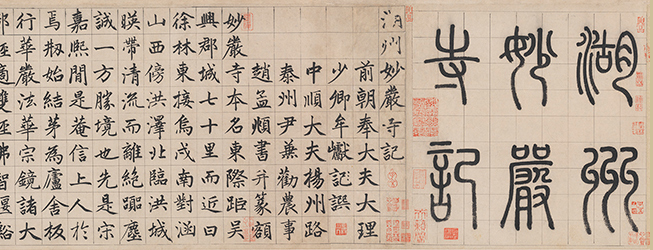 湖州
妙嚴
寺記
湖州妙嚴寺記
前朝奉大夫大理
少卿牟巘記譔
中順大夫揚州路
泰州尹兼勸農事
趙孟頫書并篆額
妙嚴寺本名東際距吳
興郡城七十里而近曰
徐林東接烏戍南對涵
山西傍洪澤北臨洪城
暎帶清流而離絕囂塵
誠一方勝境也先是宋
嘉熙間是菴信上人於
焉刱始結茅為廬舍板
行華嚴法華宗鏡諸大
部經適雙徑佛智偃谿